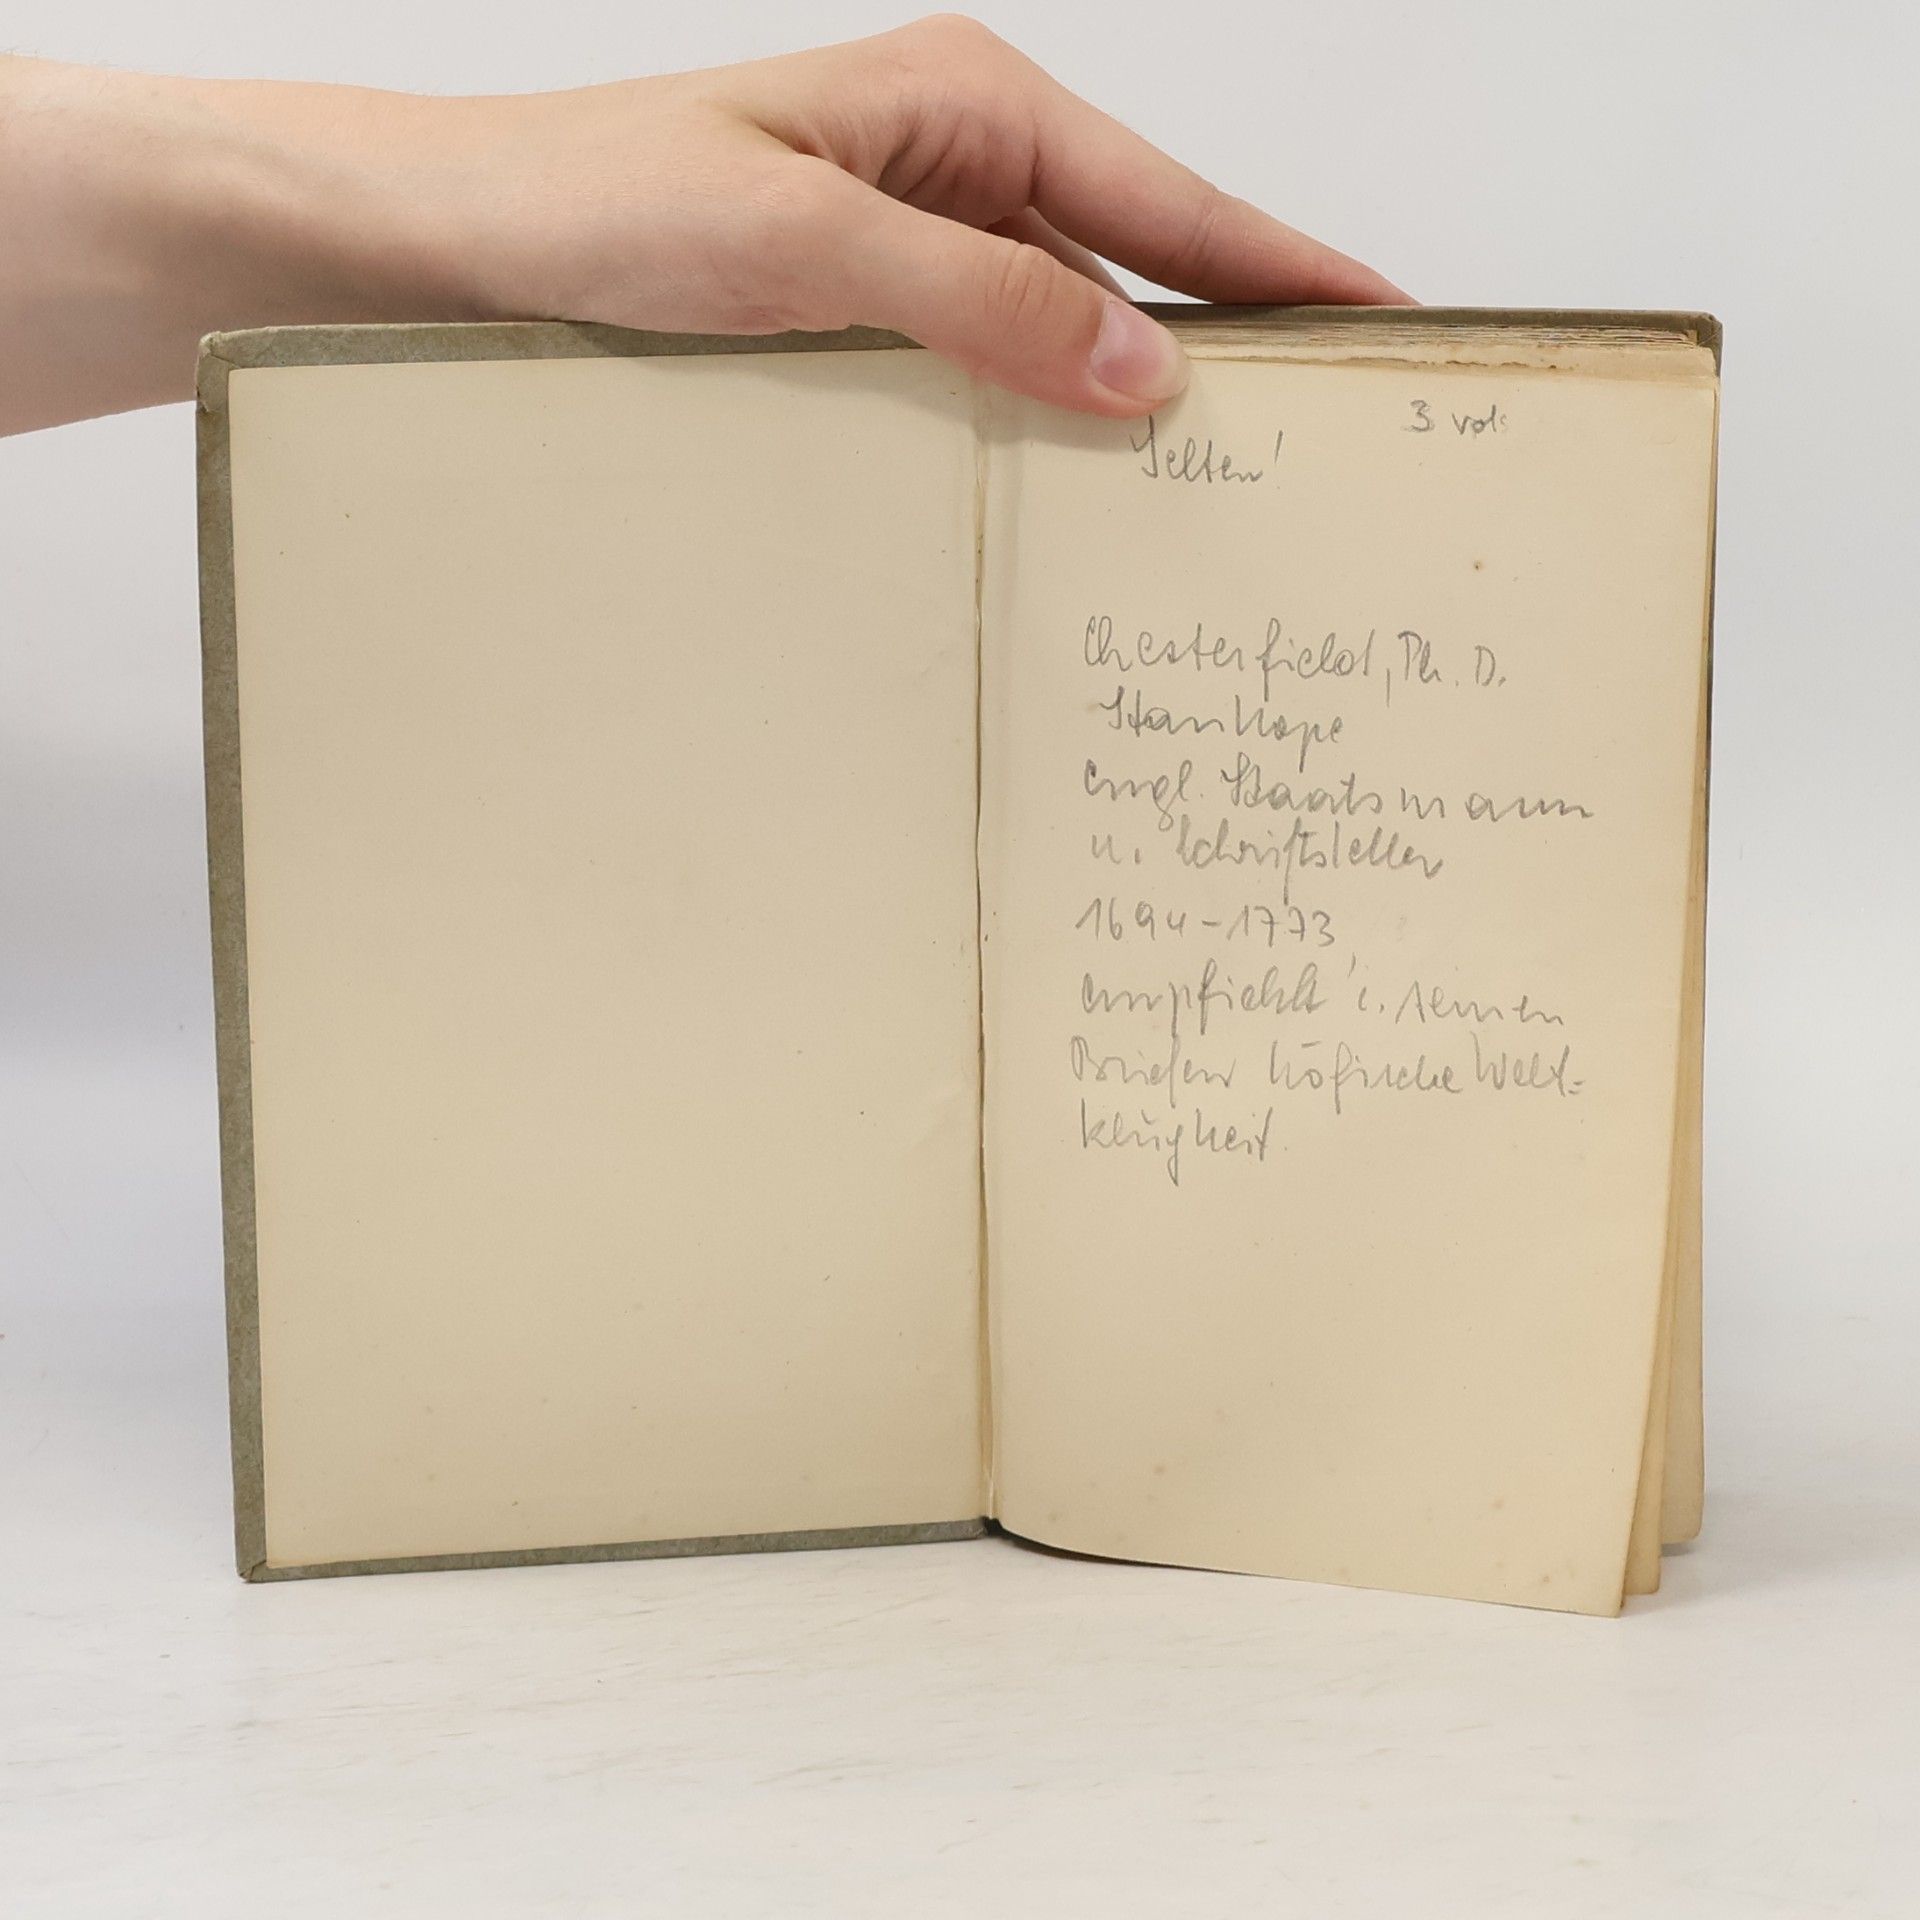 3 vols
Selten!
Chesterfield, Ph. D.
Stanhope
engl. Staatsmann
u. Schriftsteller
1694-1773,
empfiehlt i. seinen
Briefen höfische Welt=
klugheit.